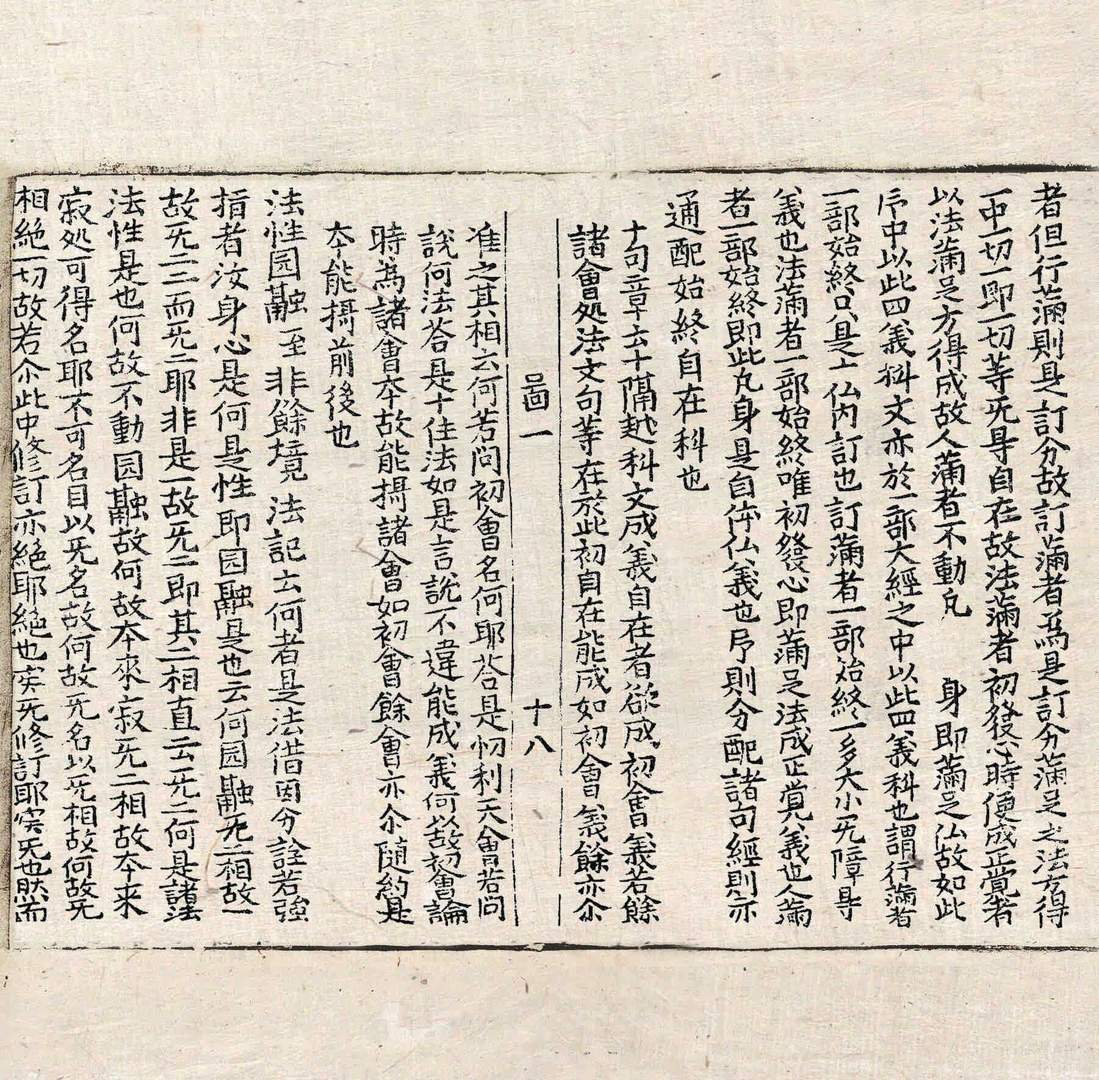 者但行蒲則是訂分故訂蒲者為是訂分蒲足之法方得
一中一切一即一切等旡㝵自在故法蒲者初發心時便成正覺者
以法蒲足方得成故人蒲者不動凢　身即蒲足仏故如此
序中以此四義科文亦於一部大經之中以此四義科也謂行蒲者
一部始終只是上仏內訂也訂蒲者一部始終一多大小旡障㝵
義也法蒲者一部始終唯初發心即蒲足法成正覺義也人蒲
者一部始終即此凢身是自体仏義也序則分配諸句經則亦
通配始終自在科也
十句章云十隔越科文成義自在者欲成初會義若餘
諸會処法文句等在於此初自在能成如初會義餘亦尒
啚一　十八
准之其相云何若問初會名何耶荅是忉利天會若問
說何法荅是十住法如是言說不違能成義何以故初會論
時為諸會夲故能攝諸會如初會餘會亦尒随約是
夲能攝前後也
法性圎融至非餘境　法記云何者是法借因分詮若強
指者汝身心是何是性即圎融是也云何圎融旡二相故一
故旡二二而旡二耶非是一故旡二即其二相直云旡二何是諸法
法性是也何故不動圎融故何故夲來寂旡二相故夲来
寂処可得名耶不可名目以旡名故何故旡名以旡相故何故旡
相絶一切故若尒此中修訂亦絶耶絶也実旡修訂耶実旡也然而